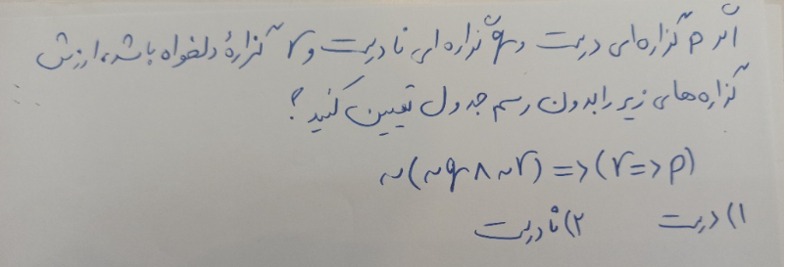 اگر p گزاره‌ای درست و q گزاره‌ای نادرست و r گزارهٔ دلخواه باشد، ارزش
گزاره‌های زیر را بدون رسم جدول تعیین کنید؟
~(~q ∧ ~r) => (r => p)
۱) درست ۲) نادرست